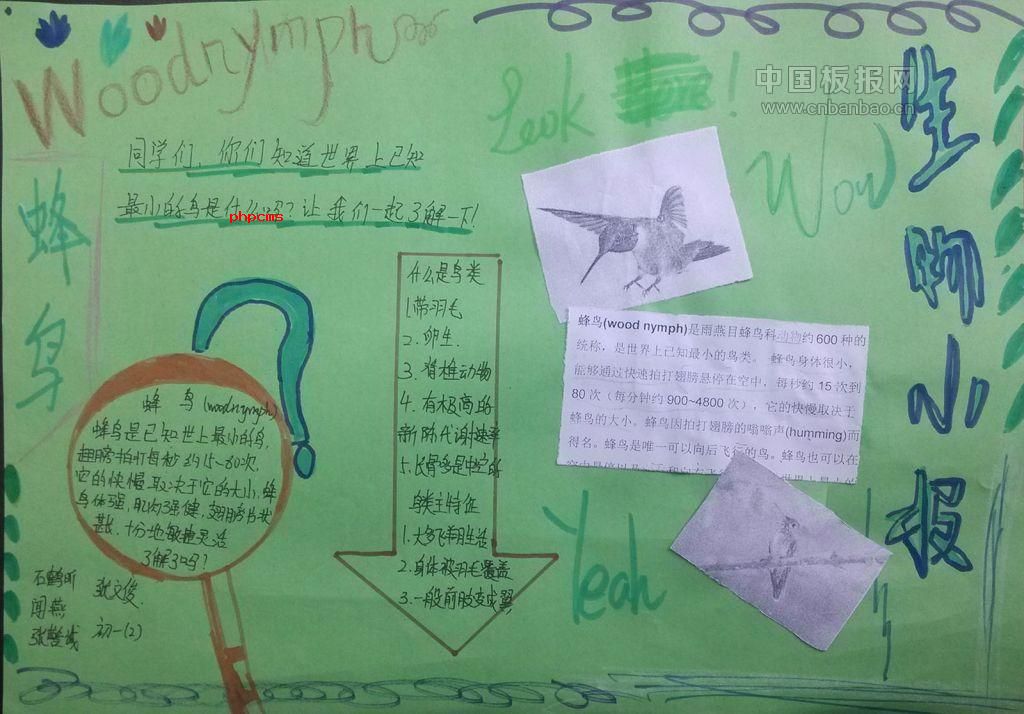 Woodnymph
Look
!
中国板报网
www.cnbanbao.cn
Wow
生物小报
蜂鸟
同学们，你们知道世界上已知
最小的鸟是什么吗？让我们一起了解一下！
phpcms
什么是鸟类
1.带羽毛
2.卵生
3.脊椎动物
4.有极高的
新陈代谢速率
5.长骨多是中空的
鸟类主特征
1.大多飞翔生活
2.身体被羽毛覆盖
3.一般前肢变成翼
蜂鸟(wood nymph)是雨燕目蜂鸟科动物约600种的
统称，是世界上已知最小的鸟类。蜂鸟身体很小，
能够通过快速拍打翅膀悬停在空中，每秒约15次到
80次（每分钟约900~4800次），它的快慢取决于
蜂鸟的大小。蜂鸟因拍打翅膀的嗡嗡声(humming)而
得名。蜂鸟是唯一可以向后飞行的鸟。蜂鸟也可以在
蜂鸟(woodnymph)
蜂鸟是已知世上最小的鸟，
翅膀拍打每秒约15~80次，
它的快慢取决于它的大小，蜂
鸟体强，肌肉强健，翅膀桨状
甚长，十分地敏捷灵活
了解了吗？
Yeah
张文俊
闻燕
初一(2)